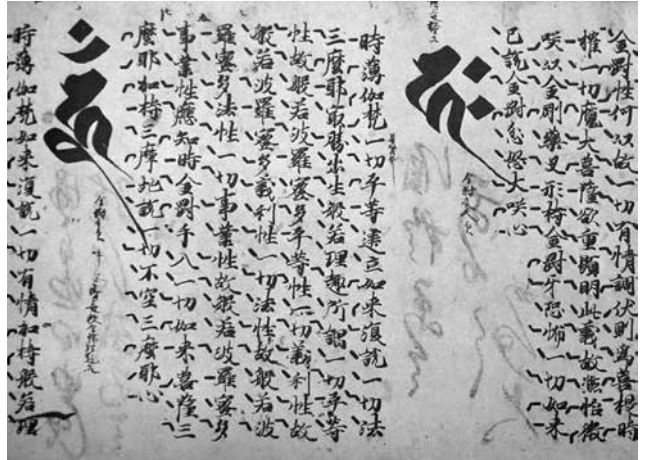 金剛性何以故一切有情調伏則為菩提時
摧一切魔大菩薩欲重顯明此義故熙怡微
咲以金剛藥叉形持金剛牙恐怖一切如来
已說金剛忿怒大咲心
𑖮𑖾
時薄伽梵一切平等建立如来復說一切法
三麼耶最勝出生般若理趣所謂一切平等
性故般若波羅蜜多平等性一切義利性故
般若波羅蜜多義利性一切法性故般若波
羅蜜多法性一切事業性故般若波羅蜜多
事業性應知時金剛手入一切如来菩薩三
麼耶加持三摩地說一切不空三麼耶心
𑖮𑖳𑖽
時薄伽梵如来復說一切有情加持般若理